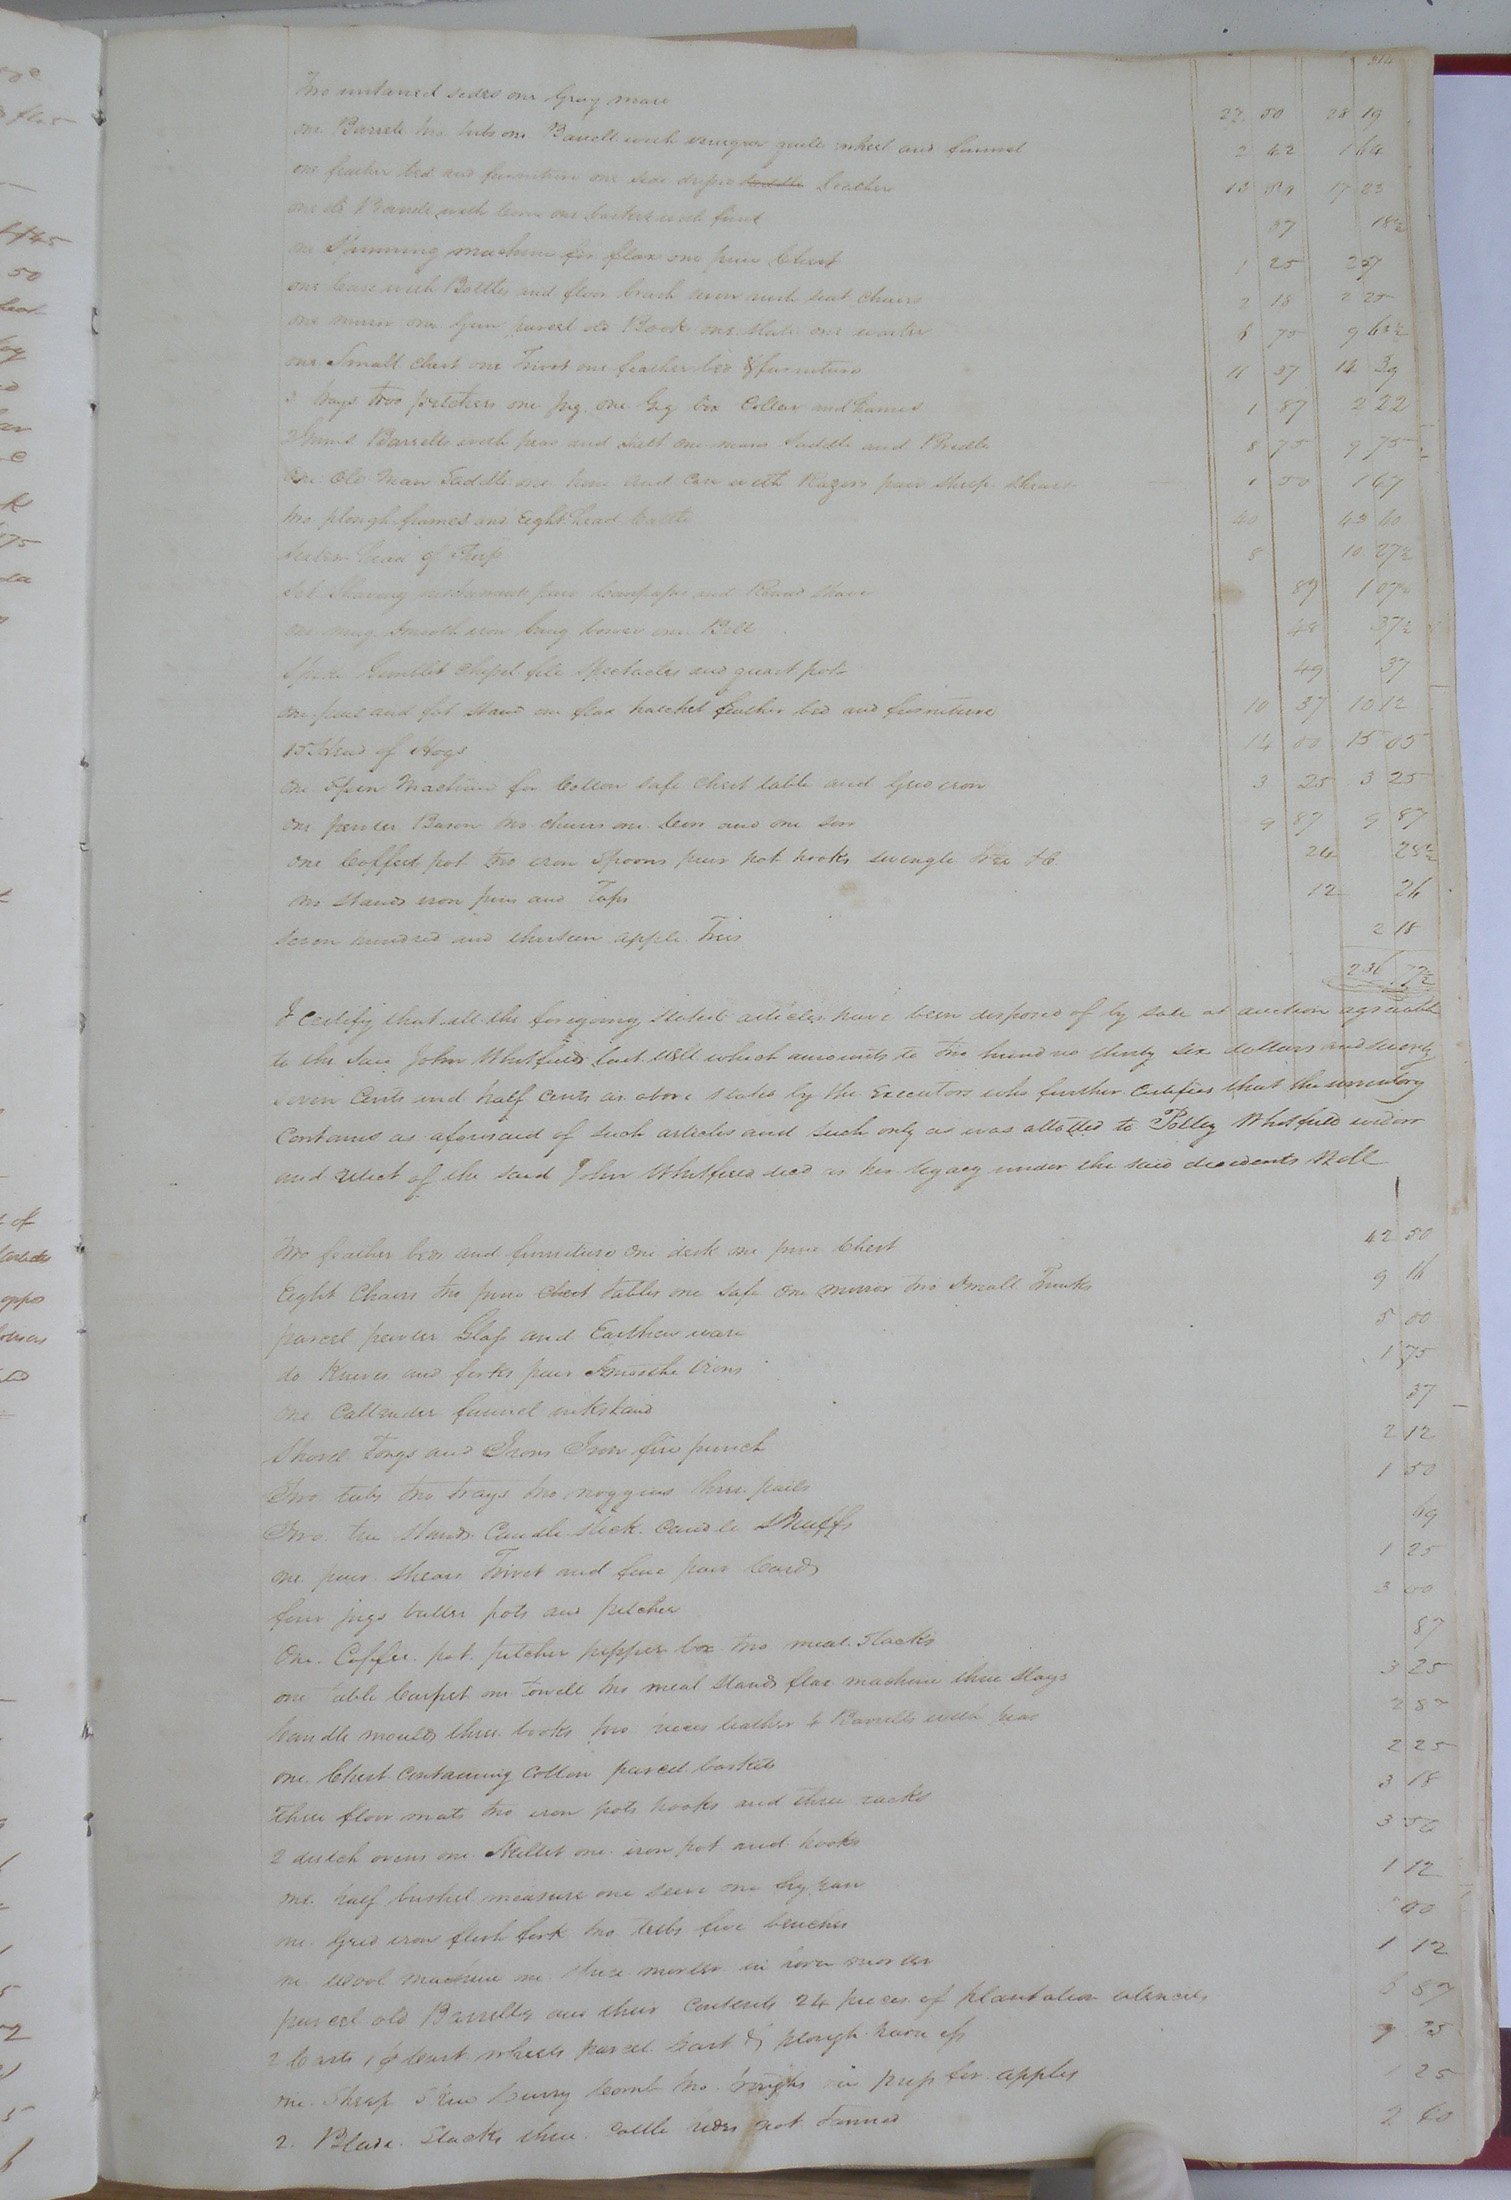 314
two untaned sides one Gray mare 27 50 28 19
one Barrele two tubs one Barrell with vinegar quill wheel and funnel 2 42 1 64
one feather bed and furniture one side dress leather 13 50 17 23
one do Barrele with one basket with 37 18½
one Spinning machine for flax one pine Chest 1 25 2 57
one Case with Bottles and floor brush seven rush seat chairs 2 18 2 25
one mirror one Gun parcel old Books one slate one waiter 6 75 9 63½
one Small chest one Trivet one feather bed & furniture 11 37 14 39
3 trays two pitchers one jug one Gig box Collar and hames 1 87 2 22
2 Gums Barrells with peas and salt one mans saddle and Bridle 8 75 9 75
One Old Man Saddle one hone and case with Razors pair sheep shears 1 50 1 67
two plough frames and Eight head Cattle 40 43 60
head of 8 10 27½
Set Shaving instruments pair Compasses and Round Shave 89 1 07½
one mug smooth iron one Bell 48 37½
Gimblet Chisel file Spectacles and quart pot 49 37
one and fat stand one flax hatchel feather bed and furniture 10 37 10 12
15 Head of Hogs 14 00 15 05
one Spin Machine for Cotton safe chest table and Grid iron 3 25 3 25
one pewter Bason two chairs one and one 9 87 9 87
one Coffee pot two iron spoons pair pot hooks swingle tree &C 24 25½
two stands iron pins and Taps 12 26
Seven hundred and thirteen apple Trees 2 18
236 77½
I certify that all the foregoing stated articles have been disposed of by sale at auction agreeable
to the said John Whitfield last will which amounts to two hundred thirty six dollars and seventy
seven Cents and half Cents as above stated by the Executors who further certifies that the inventory
Contains as aforesaid of such articles and such only as was allotted to Polley Whitfield widow
and relict of the said John Whitfield decd as her legacy under the said decedents Will
two feather beds and furniture one desk one pine Chest 42 50
Eight Chairs two pine chest tables one safe one mirror two Small Trunks 9 16
parcel pewter Glass and Earthen ware 5 00
do Knives and forks pair Smoothe irons 1 75
one Callender funnel inkstand 37
Shovel Tongs and Irons Iron fire punch 2 12
Two tubs two trays two noggins three pails 1 50
Two stands Candle stick candle Snuffs 69
one pair shears Trivet and five pair Cards 1 25
four jugs butter pots and pitcher 3 00
One Coffee pot pitcher pepper box two meal Sacks 87
one table Carpet one Towell two meal stands flax machine three Slays 3 25
Candle moulds three books two pieces leather 6 Barrells with peas 2 87
one Chest Containing Cotton parcel baskets 2 25
three floor mats two iron pots hooks and three racks 3 18
2 dutch ovens one Skillet one iron pot and hooks 3 50
one half bushel measure one seive one fry pan 1 12
one Grid iron flesh fork two tubs five benches 00
one wool machine one spice morter one iron morter 1 12
parcel old Barrells and their Contents 24 pieces of plantation utensils 6 87
2 Carts 1 pr Cart wheels parcel Cart & plough harness 9 25
one Sheep Curry Comb two troughs one press for apples 1 25
2 Blade Stacks three Cattle hides not Tanned 2 60